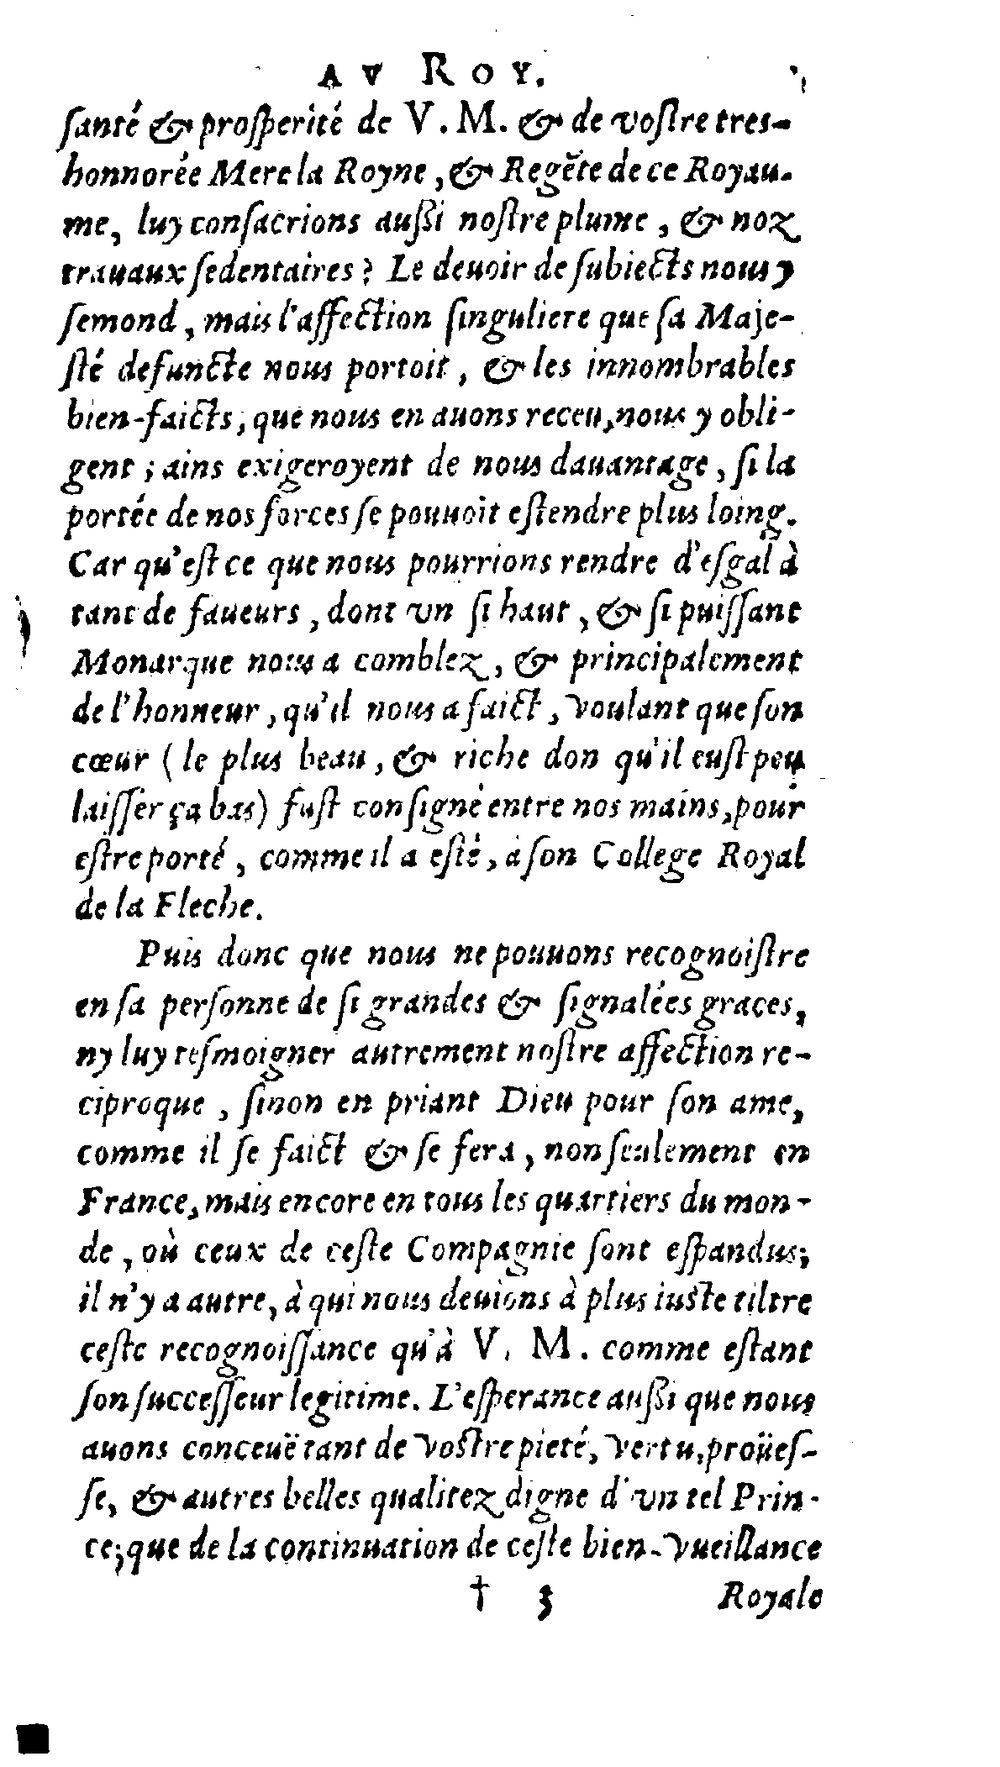 AV ROY.
ſanté & proſperité de V. M. & de voſtre tres-
honnorée Mere la Royne, & Regẽte de ce Royau-
me, luy conſacrions auſſi noſtre plume, & noz
trauaux ſedentaires? Le deuoir de ſubiects nous y
ſemond, mais l'affection ſinguliere que ſa Maje-
ſté defuncte nous portoit, & les innombrables
bien-faicts, que nous en auons receu, nous y obli-
gent; ains exigeroyent de nous dauantage, ſi la
portée de nos forces ſe pouuoit eſtendre plus loing.
Car qu'eſt ce que nous pourrions rendre d'eſgal à
tant de faueurs, dont vn ſi haut, & ſi puiſſant
Monarque nous a comblez, & principalement
de l'honneur, qu'il nous a faict, voulant que ſon
cœur (le plus beau, & riche don qu'il euſt peu
laiſſer ça bas) fuſt conſigné entre nos mains, pour
eſtre porté, comme il a eſté, à ſon College Royal
de la Fleche.
Puis donc que nous ne pouuons recognoiſtre
en ſa perſonne de ſi grandes & ſignalées graces,
ny luy teſmoigner autrement noſtre affection re-
ciproque, ſinon en priant Dieu pour ſon ame,
comme il ſe faict & ſe fera, non ſeulement en
France, mais encore en tous les quartiers du mon-
de, où ceux de ceſte Compagnie ſont eſpandus;
il n'y a autre, à qui nous deuions à plus iuſte tiltre
ceſte recognoiſſance qu'à V. M. comme eſtant
ſon ſucceſſeur legitime. L'eſperance auſſi que nous
auons conceuë tant de voſtre pieté, vertu, proüeſ-
ſe, & autres belles qualitez digne d'vn tel Prin-
ce; que de la continuation de ceſte bien-vueillance
† 3 Royale